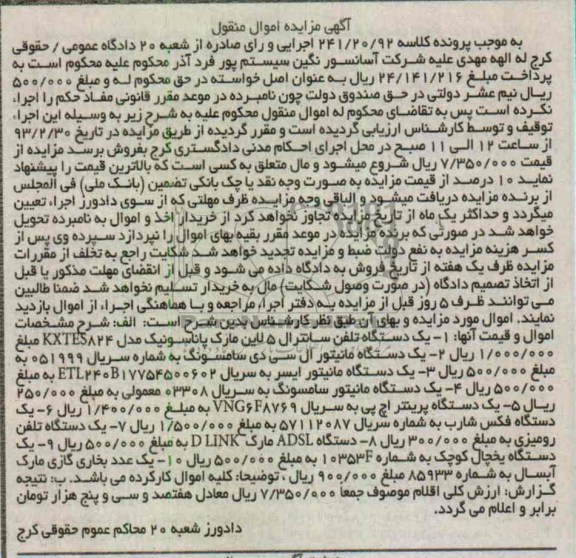 آگهی مزایده اموال منقول
به موجب پرونده کلاسه ۲۴۱/۲۰/۹۲ اجرایی و رای صادره از شعبه ۲۰ دادگاه عمومی / حقوقی
کرج له الهه مهدی علیه شرکت آسانسور نگین سیستم پور فرد آذر محکوم علیه محکوم است به
پرداخت مبلغ ۲۴/۱۴۱/۲۱۶ ریال به عنوان اصل خواسته در حق محکوم له و مبلغ ۵۰۰/۰۰۰
ریال نیم عشر دولتی در حق صندوق دولت چون نامبرده در موعد مقرر قانونی مفاد حکم را اجرا،
نکرده است پس به تقاضای محکوم له اموال منقول محکوم علیه به شرح زیر به وسیله این اجرا،
توقیف و توسط کارشناس ارزیابی گردیده است و مقرر گردیده از طریق مزایده در تاریخ ۹۳/۲/۳۰
از ساعت ۱۲ الی ۱۱ صبح در محل اجرای احکام مدنی دادگستری کرج بفروش برسد مزایده از
قیمت ۷/۳۵۰/۰۰۰ ریال شروع میشود و مال متعلق به کسی است که بالاترین قیمت را پیشنهاد
نماید ۱۰ درصد از قیمت مزایده به صورت وجه نقد یا چک بانکی تضمین (بانک ملی) فی المجلس
از برنده مزایده دریافت میشود و الباقی وجه مزایده ظرف مهلتی که از سوی دادورز اجرا، تعیین
میگردد و حداکثر یک ماه از تاریخ مزایده تجاوز نخواهد کرد از خریدار اخذ و اموال به نامبرده تحویل
خواهد شد در صورتی که برنده مزایده در موعد مقرر بقیه بهای اموال را نپردازد سپرده وی پس از
کسر هزینه مزایده به نفع دولت ضبط و مزایده تجدید خواهد شد شکایت راجع به تخلف از مقررات
مزایده ظرف یک هفته از تاریخ فروش به دادگاه داده می شود و قبل از انقضای مهلت مذکور یا قبل
از اتخاذ تصمیم دادگاه (در صورت وصول شکایت) مال به خریدار تسلیم نخواهد شد ضمنا طالبین
می توانند ظرف ۵ روز قبل از مزایده به دفتر اجرا، مراجعه و با هماهنگی اجرا، از اموال بازدید
نمایند. اموال مورد مزایده و بهای آن طبق نظر کارشناس بدین شرح است: الف: شرح مشخصات
اموال و قیمت آنها: ۱- یک دستگاه تلفن سانترال ۵ لاین مارک پاناسونیک مدل KXTES۸۲۴ مبلغ
۱/۰۰۰/۰۰۰ ریال ۲- یک دستگاه مانیتور ال سی دی سامسونگ به شماره سریال ۰۵۱۹۹۹ به
مبلغ ۵۰۰/۰۰۰ ریال ۳- یک دستگاه مانیتور ایسر به سریال ETL۲۴۰B۱۷۷۵۴۵۰۰۶۰۲ به مبلغ
۵۰۰/۰۰۰ ریال ۴- یک دستگاه مانیتور سامسونگ به سریال ۰۳۳۰۸ معمولی به مبلغ ۲۵۰/۰۰۰
ریال ۵- یک دستگاه پرینتر اچ پی به سریال VNG۶F۸۷۶۹ به مبلغ ۱/۴۰۰/۰۰۰ ریال ۶- یک
دستگاه فکس شارپ به شماره سریال ۵۷۱۱۲۰۸۷ به مبلغ ۱/۵۰۰/۰۰۰ ریال ۷- یک دستگاه تلفن
رومیزی به مبلغ ۳۰۰/۰۰۰ ریال ۸- دستگاه ADSL مارک D LINK به مبلغ ۵۰۰/۰۰۰ ریال ۹- یک
دستگاه یخچال کوچک به شماره ۱۰۳۵۳F به مبلغ ۵۰۰/۰۰۰ ریال ۱۰- یک عدد بخاری گازی مارک
آبسال به شماره ۸۵۹۳۳ مبلغ ۹۰۰/۰۰۰ ریال ، توضیحا: کلیه اموال کارکرده می باشد. ب: نتیجه
گزارش: ارزش کلی اقلام موصوف جمعا ۷/۳۵۰/۰۰۰ ریال معادل هفتصد و سی و پنج هزار تومان
برابر و اعلام می گردد.
دادورز شعبه ۲۰ محاکم عموم حقوقی کرج